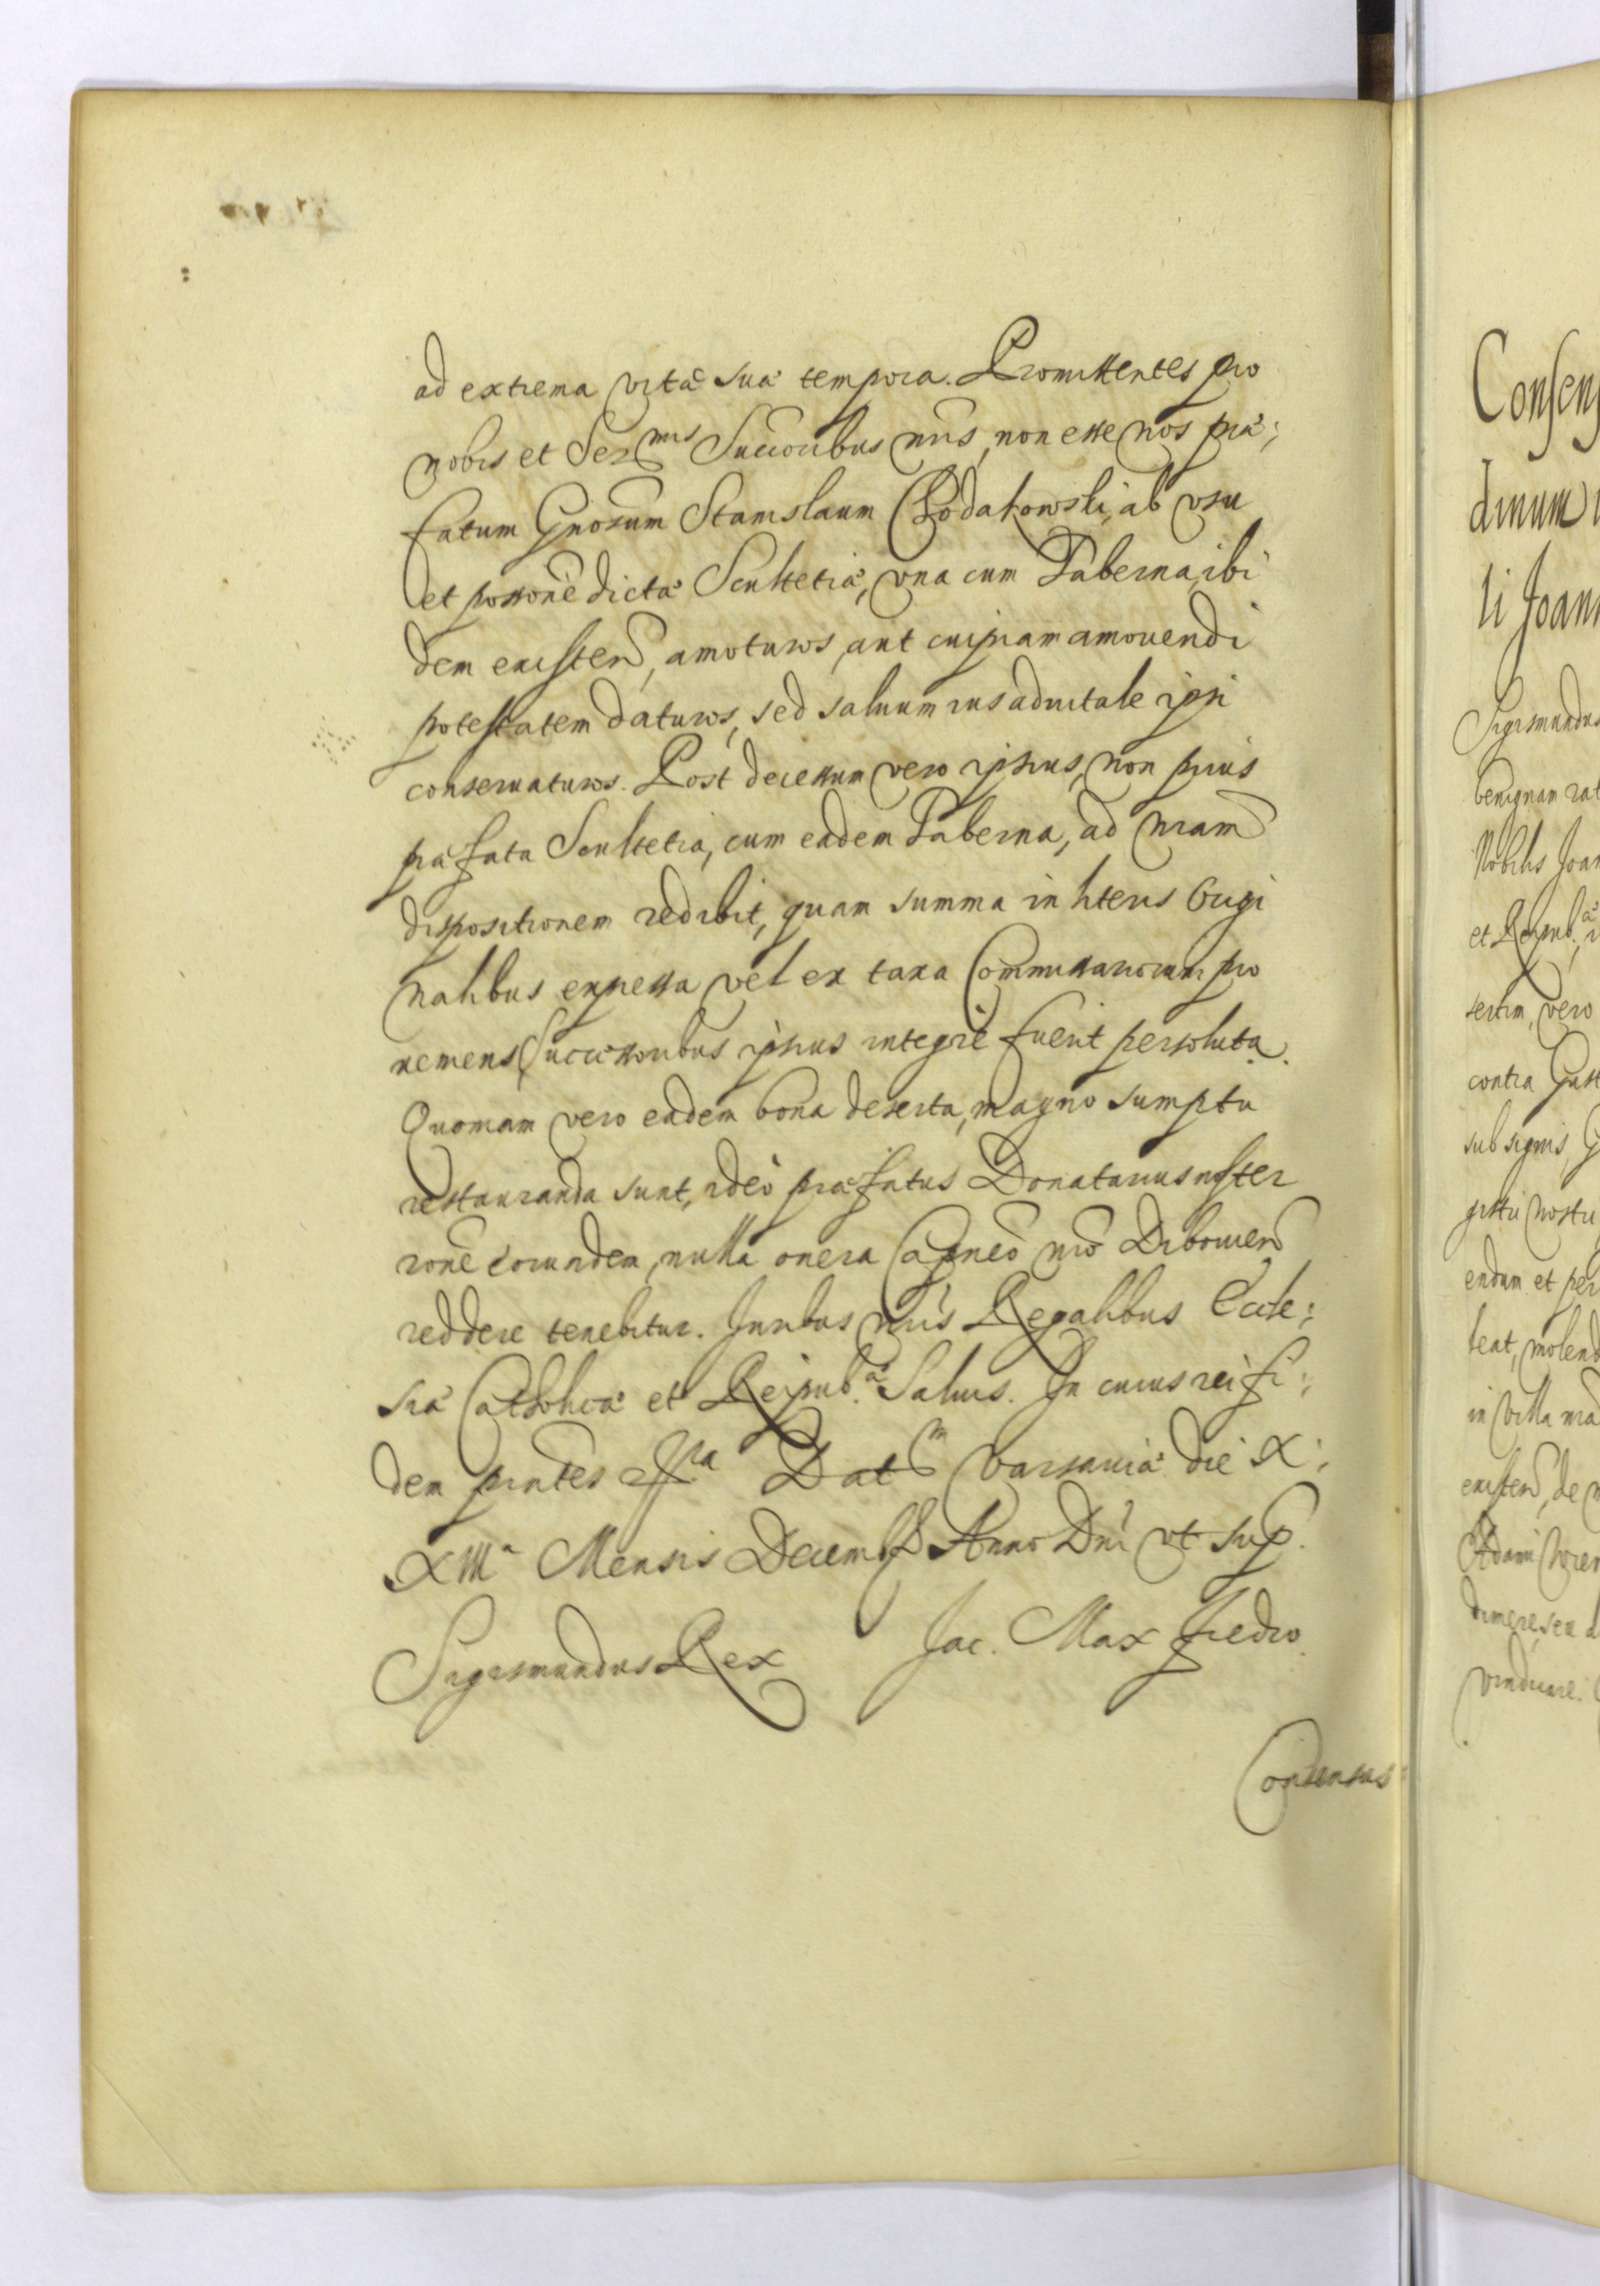 ad extrema vitæ suæ tempora. Promittentes pro
nobis et Ser<sup>mis</sup> Succoribus nris, non esse nos præ:
fatum Gnosum Stanislaum Chodakowski, ab usu
et possone dictæ Scultetiæ, una cum Taberna, ibi
dem existen, amoturos, aut cuipiam amovendi
potestatem daturos, sed salvum ius advitale ipsi
conservaturos. Post decessum vero ipsius, non prius
præfata Scultetia, cum eadem Taberna, ad nram
dispositionem redibit, quam summa in literis Origi
nalibus expressa vel ex taxa Commissariorum pro
veniens Successoribus ipsius integre fuerit persoluta.
Quoniam vero eadem bona deserta, magno sumptu
restauranda sunt, ideo præfatus Donatarius noster
rone eorundem, nulla onera Capneo nro Dibovien
reddere tenebitur. Iuribus nris Regalibus Eccle:
siæ Catholicæ et Reipub.æ Salvis. In cuius rei fi:
dem prntes Dat Varsaviæ die X:
XIII<sup>a</sup> Mensis Decemb Anno Dni ut sup.
Sigismundus Rex Jac. Max Fredro.
Consensus
Consens
dinum
li Joann
Sigismundus
benignam rat
Nobilis Joan
et Reipub.æ
sertim, vero
contra Gust
sub signis, G
gistri nostri
endum et per
beat, molend
in villa nra
existen, de
Adami
dimere, seu
vendicare.